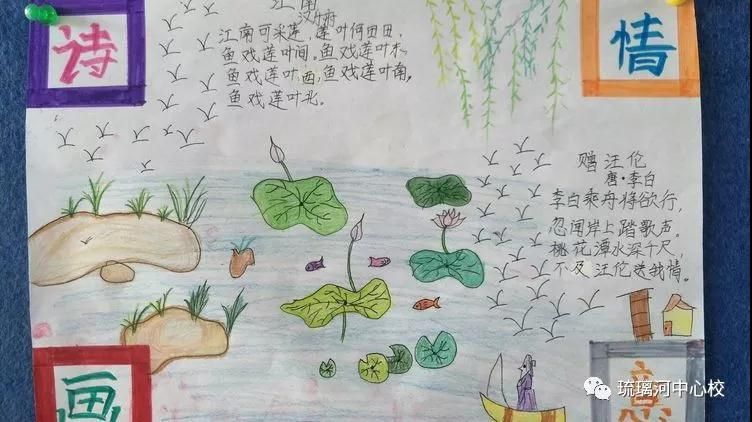 诗
情
江南
汉乐府
江南可采莲,莲叶何田田,
鱼戏莲叶间。鱼戏莲叶东,
鱼戏莲叶西,鱼戏莲叶南,
鱼戏莲叶北。
赠汪伦
唐·李白
李白乘舟将欲行,
忽闻岸上踏歌声。
桃花潭水深千尺
不及汪伦送我情。
画
意
琉璃河中心校